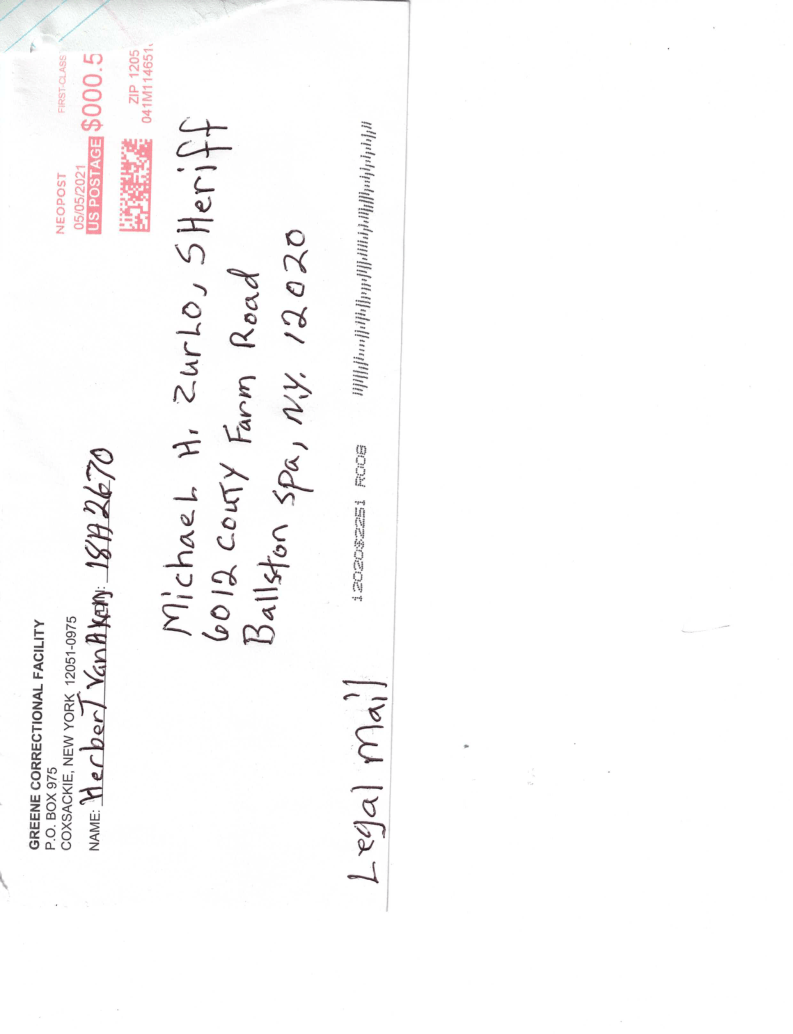 GREENE CORRECTIONAL FACILITY
P.O. BOX 975
COXSACKIE, NEW YORK 12051-0975
NAME: Herbert VanAken DIN: 18A2670
NEOPOST FIRST-CLASS
05/05/2021
US POSTAGE $000.5
ZIP 1205
041M114651
Michael H. Zurlo, SHeriff
6012 Couty Farm Road
Ballston Spa, N.Y. 12020
12020$2251 R008
Legal Mail